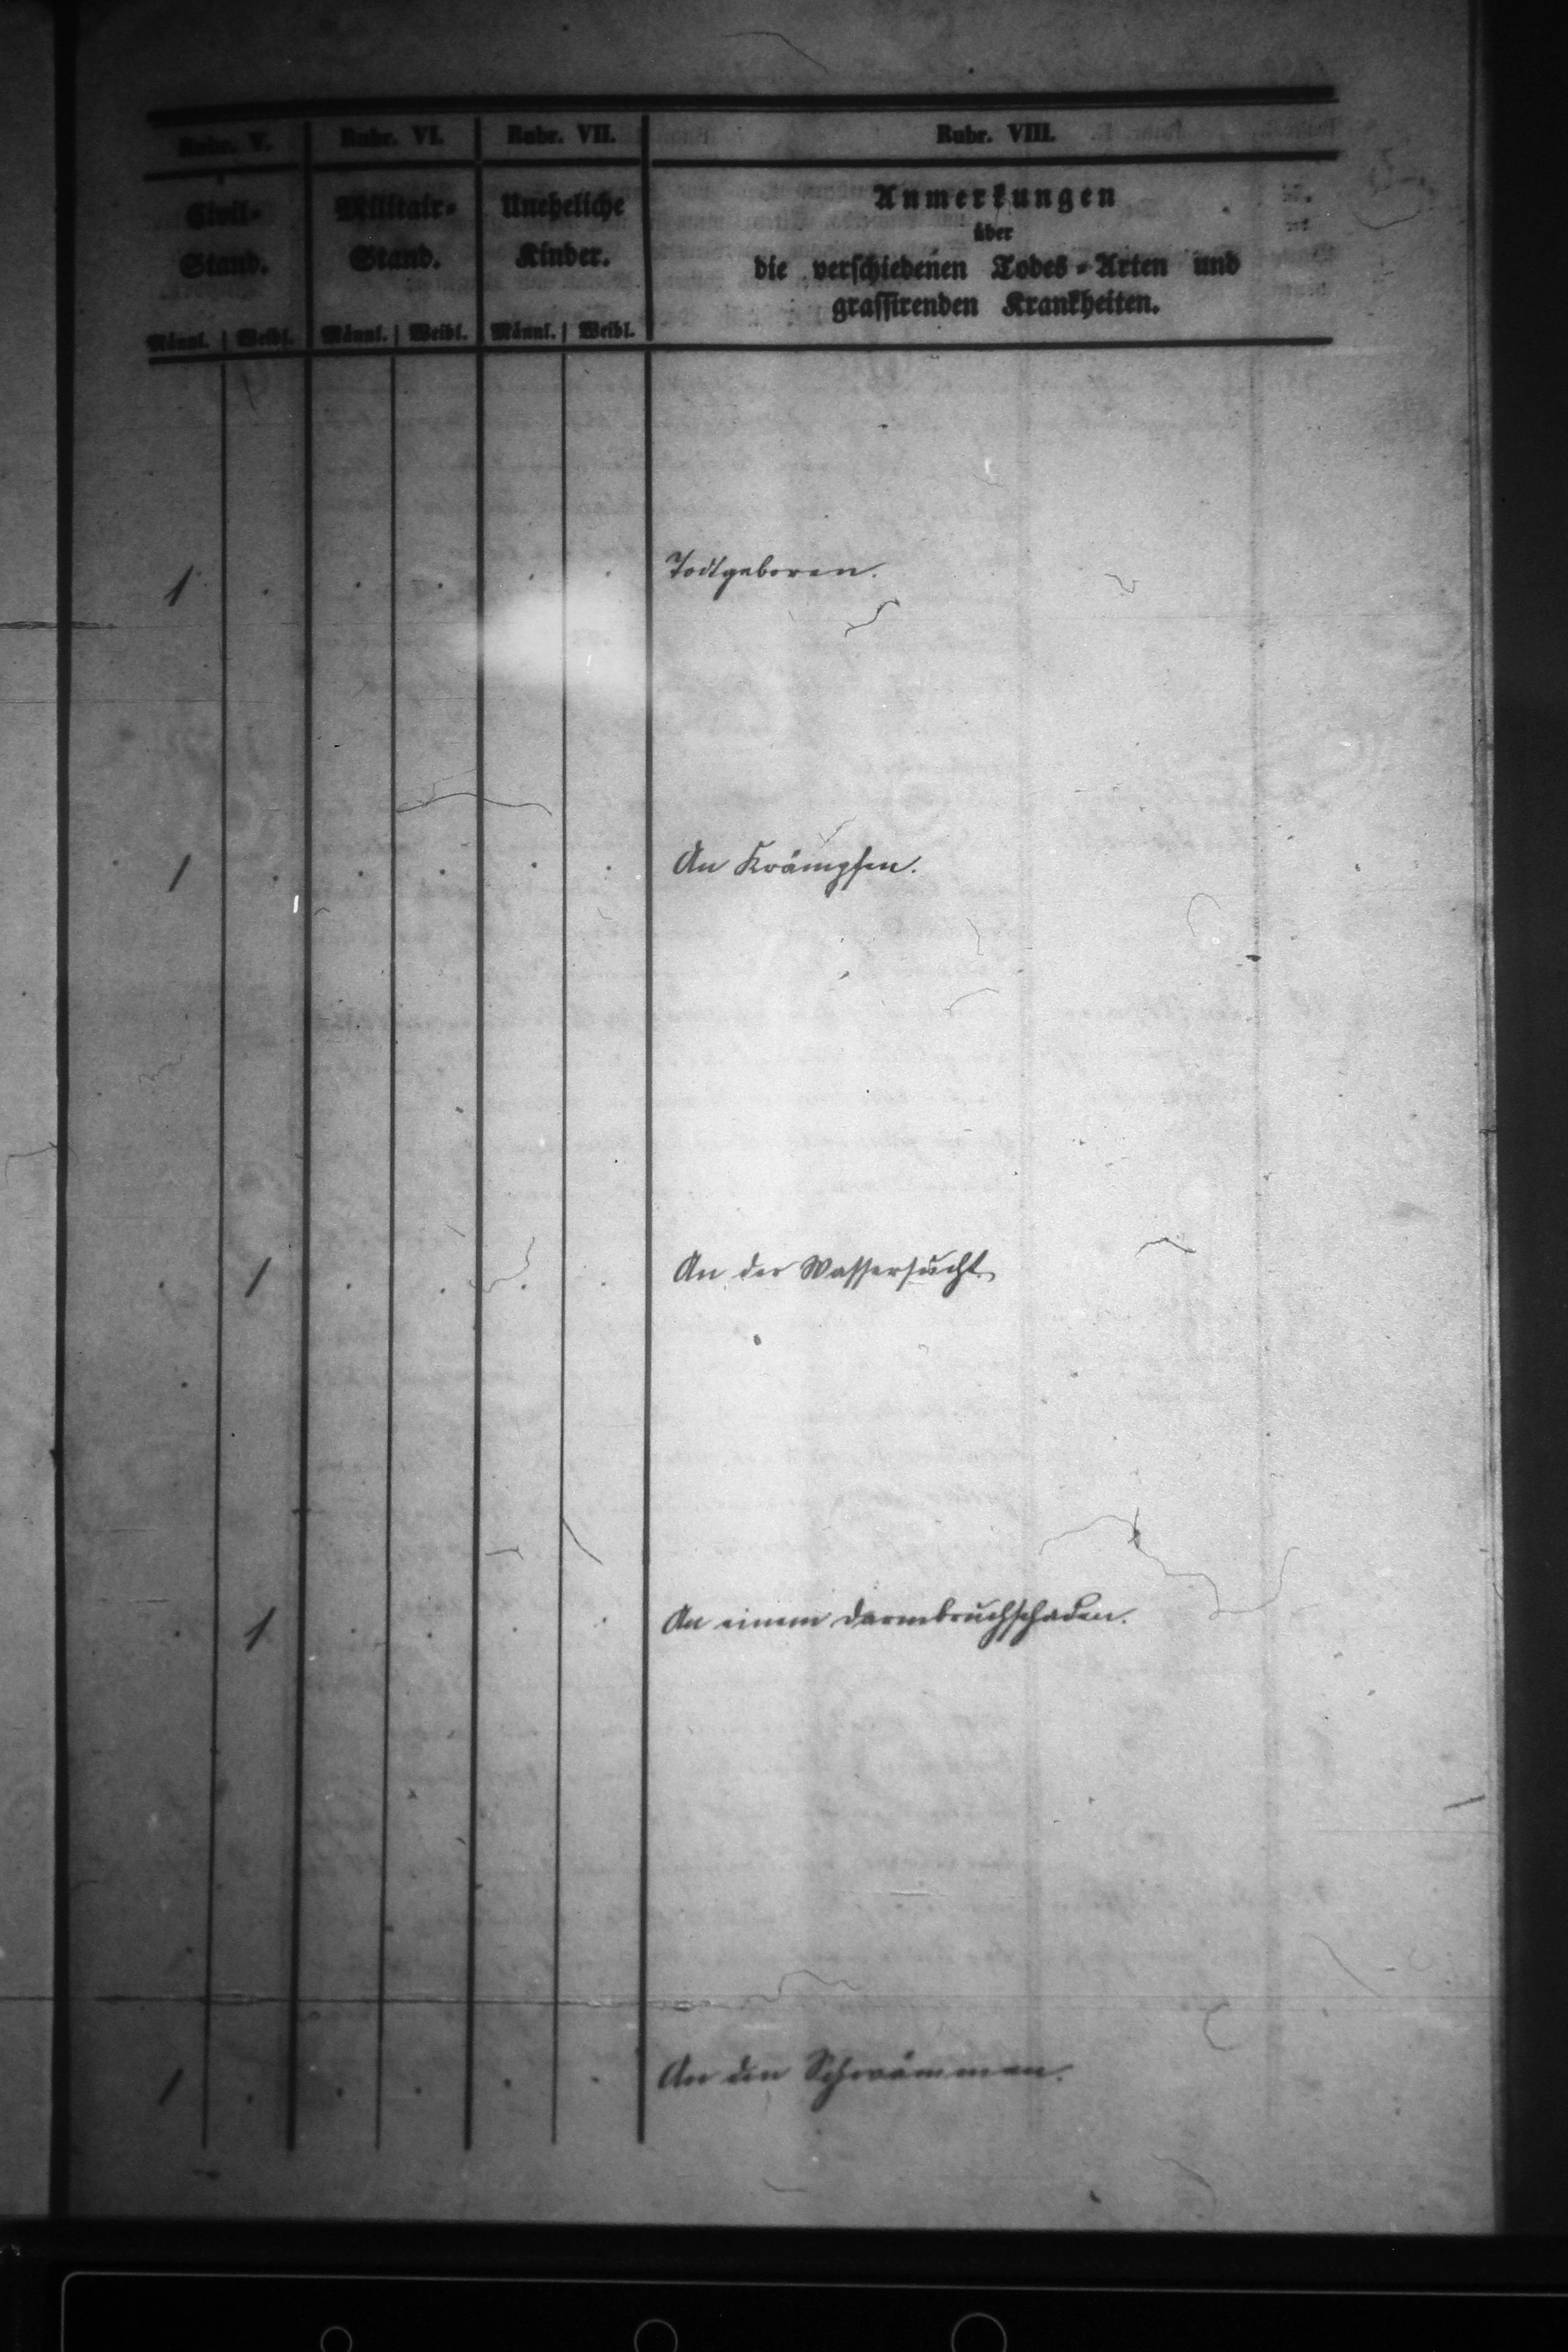 Rubr. V. Rubr. VI. Rubr. VII. Rubr. VIII.
Civil- Militair- Uneheliche Anmerkungen
über
Stand. Stand. Kinder. die verschiedenen Todes-Arten und
grassirenden Krankheiten.
Männl. | Weibl. Männl. | Weibl. Männl. | Weibl.
1 . . . . . Todtgeboren.
1 . . . . . An Krämpfen.
. 1 . . . . An der Wassersucht
. 1 . . . . An einem Darmbruchschaden.
1 . . . . . An den Schwämmen.